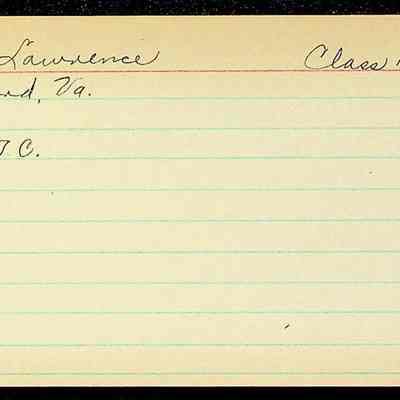 Lawrence Class
rd, Va.
T C.